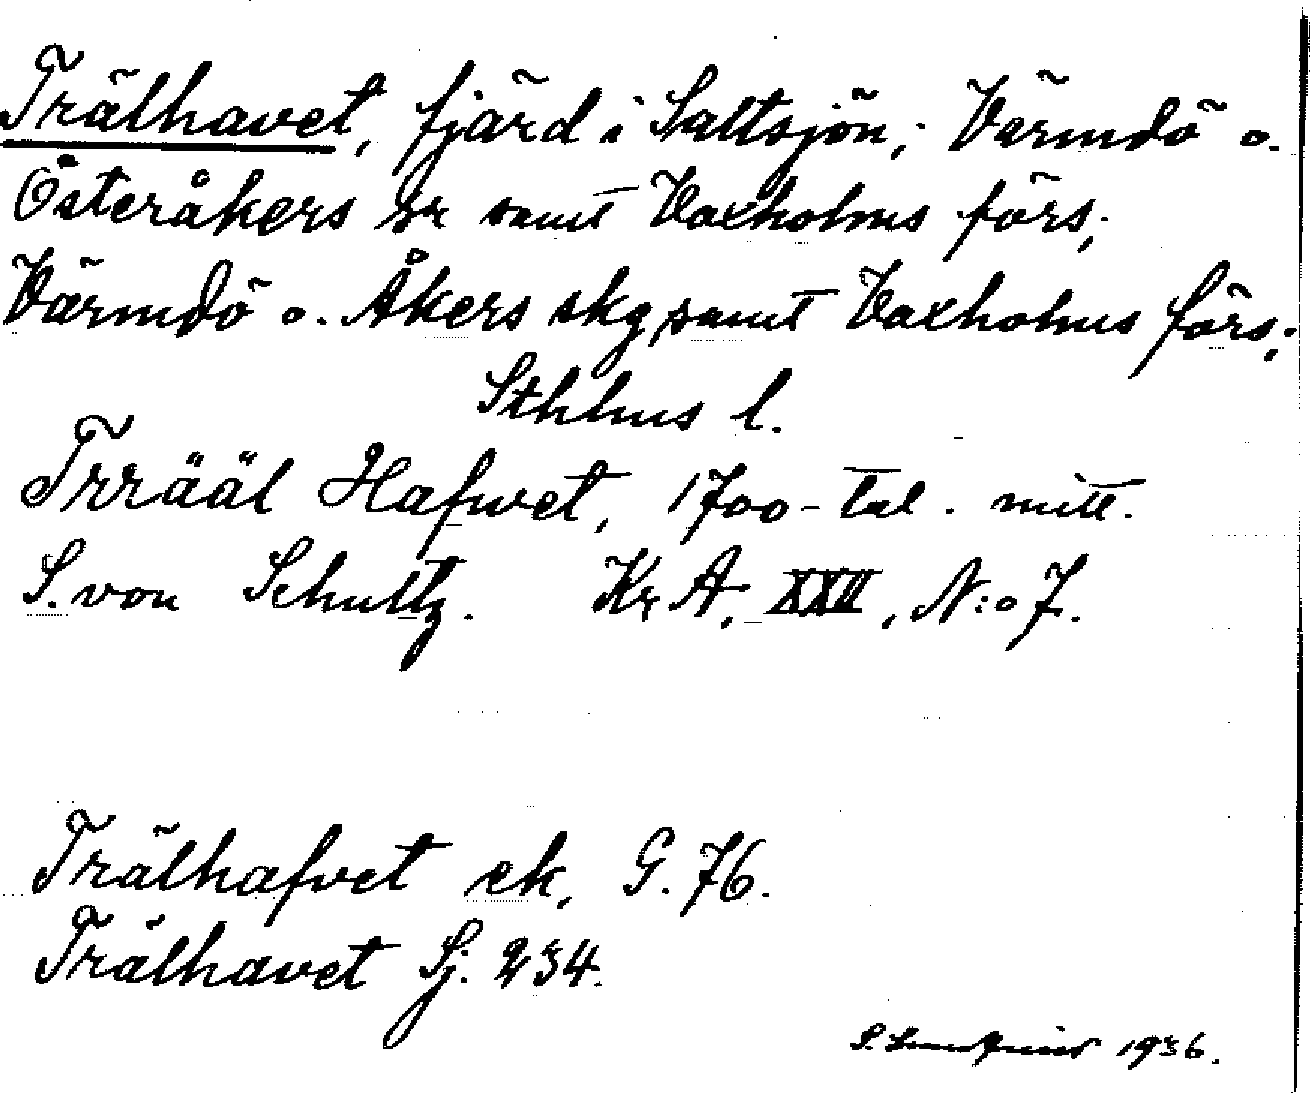 Trälhavet, fjärd i Saltsjön; Värmdö o.
Österåkers snr samt Vaxholms förs;
Värmdö o. Åkers skg, samt Vaxholms förs;
Sthlms l.
Trrääl Hafwet, 1700-tal. mitt.
S. von Schultz. Kr A, XXII, N:o 7.
Trälhafvet ek, G. 76.
Trälhavet Sj. 234.
1936.